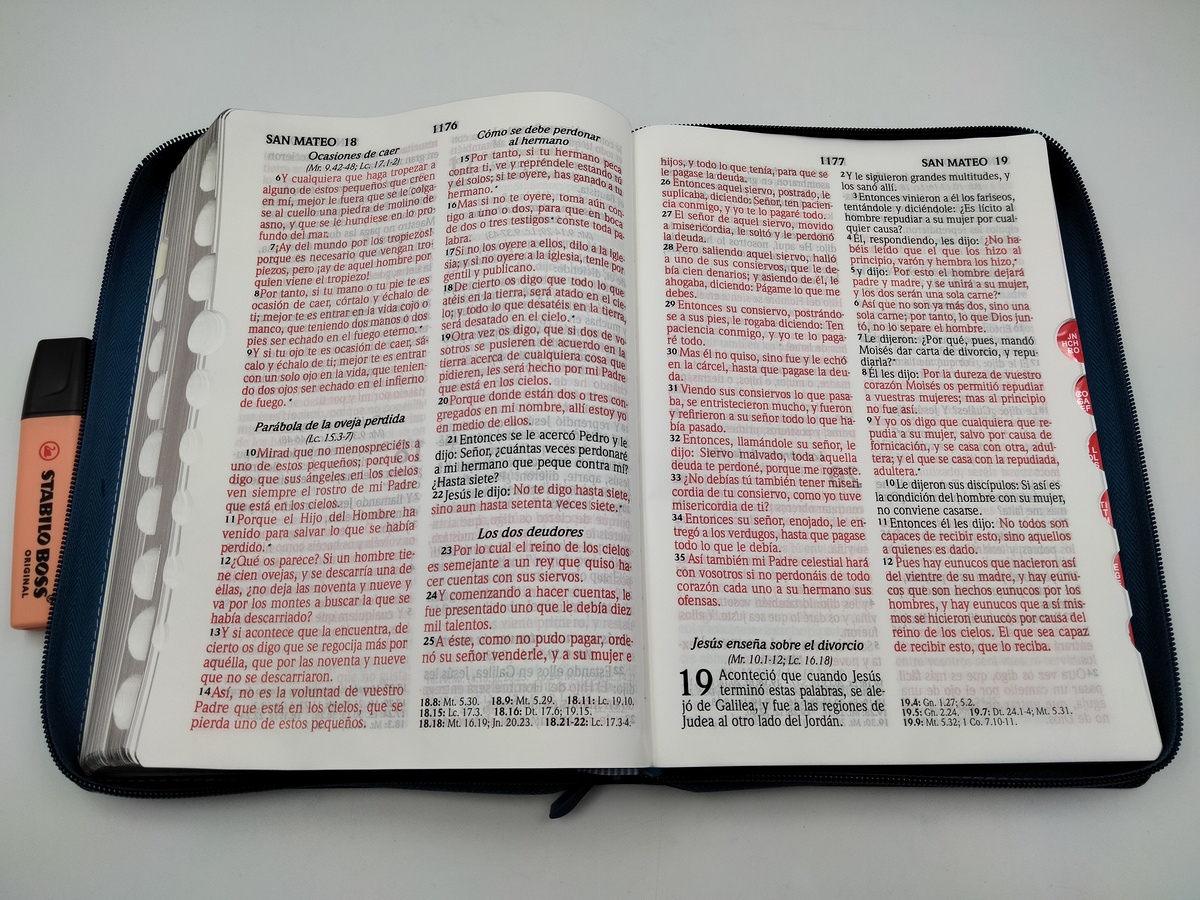 SAN MATEO 18
1176
Ocasiones de caer
(Mr. 9.42-48; Lc. 17.1-2)
6Y cualquiera que haga tropezar a
alguno de estos pequeños que creen
en mí, mejor le fuera que se le colga-
se al cuello una piedra de molino de
asno, y que se le hundiese en lo pro-
fundo del mar.
7¡Ay del mundo por los tropiezos!
porque es necesario que vengan tro-
piezos, pero ¡ay de aquel hombre por
quien viene el tropiezo!
8Por tanto, si tu mano o tu pie te es
ocasión de caer, córtalo y échalo de
ti; mejor te es entrar en la vida cojo o
manco, que teniendo dos manos o dos
pies ser echado en el fuego eterno.*
9Y si tu ojo te es ocasión de caer, sá-
calo y échalo de ti; mejor te es entrar
con un solo ojo en la vida, que tenien-
do dos ojos ser echado en el infierno
de fuego.*
Parábola de la oveja perdida
(Lc. 15.3-7)
10Mirad que no menospreciéis a
uno de estos pequeños; porque os
digo que sus ángeles en los cielos
ven siempre el rostro de mi Padre
que está en los cielos.
11Porque el Hijo del Hombre ha
venido para salvar lo que se había
perdido.*
12¿Qué os parece? Si un hombre tie-
ne cien ovejas, y se descarría una de
ellas, ¿no deja las noventa y nueve y
va por los montes a buscar la que se
había descarriado?
13Y si acontece que la encuentra, de
cierto os digo que se regocija más por
aquélla, que por las noventa y nueve
que no se descarriaron.
14Así, no es la voluntad de vuestro
Padre que está en los cielos, que se
pierda uno de estos pequeños.
Cómo se debe perdonar
al hermano
15Por tanto, si tu hermano peca
contra ti, ve y repréndele estando tú
y él solos; si te oyere, has ganado a tu
hermano.*
16Mas si no te oyere, toma aún con-
tigo a uno o dos, para que en boca
de dos o tres testigos* conste toda pa-
labra.
17Si no los oyere a ellos, dilo a la igle-
sia; y si no oyere a la iglesia, tenle por
gentil y publicano.
18De cierto os digo que todo lo que
atéis en la tierra, será atado en el cie-
lo; y todo lo que desatéis en la tierra,
será desatado en el cielo.*
19Otra vez os digo, que si dos de vo-
sotros se pusieren de acuerdo en la
tierra acerca de cualquiera cosa que
pidieren, les será hecho por mi Padre
que está en los cielos.
20Porque donde están dos o tres con-
gregados en mi nombre, allí estoy yo
en medio de ellos.
21Entonces se le acercó Pedro y le
dijo: Señor, ¿cuántas veces perdonaré
a mi hermano que peque contra mí?
¿Hasta siete?
22Jesús le dijo: No te digo hasta siete,
sino aun hasta setenta veces siete.*
Los dos deudores
23Por lo cual el reino de los cielos
es semejante a un rey que quiso ha-
cer cuentas con sus siervos.
24Y comenzando a hacer cuentas, le
fue presentado uno que le debía diez
mil talentos.
25A éste, como no pudo pagar, orde-
nó su señor venderle, y a su mujer e
18.8: Mt. 5.30. 18.9: Mt. 5.29. 18.11: Lc. 19.10.
18.15: Lc. 17.3. 18.16: Dt. 17.6; 19.15.
18.18: Mt. 16.19; Jn. 20.23. 18.21-22: Lc. 17.3-4.
1177
SAN MATEO 19
hijos, y todo lo que tenía, para que se
le pagase la deuda.
26Entonces aquel siervo, postrado, le
suplicaba, diciendo: Señor, ten pacien-
cia conmigo, y yo te lo pagaré todo.
27El señor de aquel siervo, movido
a misericordia, le soltó y le perdonó
la deuda.
28Pero saliendo aquel siervo, halló
a uno de sus consiervos, que le de-
bía cien denarios; y asiendo de él, le
ahogaba, diciendo: Págame lo que me
debes.
29Entonces su consiervo, postrándo-
se a sus pies, le rogaba diciendo: Ten
paciencia conmigo, y yo te lo paga-
ré todo.
30Mas él no quiso, sino fue y le echó
en la cárcel, hasta que pagase la deu-
da.
31Viendo sus consiervos lo que pasa-
ba, se entristecieron mucho, y fueron
y refirieron a su señor todo lo que ha-
bía pasado.
32Entonces, llamándole su señor, le
dijo: Siervo malvado, toda aquella
deuda te perdoné, porque me rogaste.
33¿No debías tú también tener miseri-
cordia de tu consiervo, como yo tuve
misericordia de ti?
34Entonces su señor, enojado, le en-
tregó a los verdugos, hasta que pagase
todo lo que le debía.
35Así también mi Padre celestial hará
con vosotros si no perdonáis de todo
corazón cada uno a su hermano sus
ofensas.
Jesús enseña sobre el divorcio
(Mr. 10.1-12; Lc. 16.18)
19 Aconteció que cuando Jesús
terminó estas palabras, se ale-
jó de Galilea, y fue a las regiones de
Judea al otro lado del Jordán.
2Y le siguieron grandes multitudes, y
los sanó allí.
3Entonces vinieron a él los fariseos,
tentándole y diciéndole: ¿Es lícito al
hombre repudiar a su mujer por cual-
quier causa?
4Él, respondiendo, les dijo: ¿No ha-
béis leído que el que los hizo al
principio, varón y hembra los hizo,*
5y dijo: Por esto el hombre dejará
padre y madre, y se unirá a su mujer,
y los dos serán una sola carne?*
6Así que no son ya más dos, sino una
sola carne; por tanto, lo que Dios jun-
tó, no lo separe el hombre.
7Le dijeron: ¿Por qué, pues, mandó
Moisés dar carta de divorcio, y repu-
diarla?*
8Él les dijo: Por la dureza de vuestro
corazón Moisés os permitió repudiar
a vuestras mujeres; mas al principio
no fue así.
9Y yo os digo que cualquiera que re-
pudia a su mujer, salvo por causa de
fornicación, y se casa con otra, adul-
tera; y el que se casa con la repudiada,
adultera.*
10Le dijeron sus discípulos: Si así es
la condición del hombre con su mujer,
no conviene casarse.
11Entonces él les dijo: No todos son
capaces de recibir esto, sino aquellos
a quienes es dado.
12Pues hay eunucos que nacieron así
del vientre de su madre, y hay eunu-
cos que son hechos eunucos por los
hombres, y hay eunucos que a sí mis-
mos se hicieron eunucos por causa del
reino de los cielos. El que sea capaz
de recibir esto, que lo reciba.
19.4: Gn. 1.27; 5.2.
19.5: Gn. 2.24. 19.7: Dt. 24.1-4; Mt. 5.31.
19.9: Mt. 5.32; 1 Co. 7.10-11.
JN
HCH
RO
CO
GA
EF
STABILO BOSS
ORIGINAL